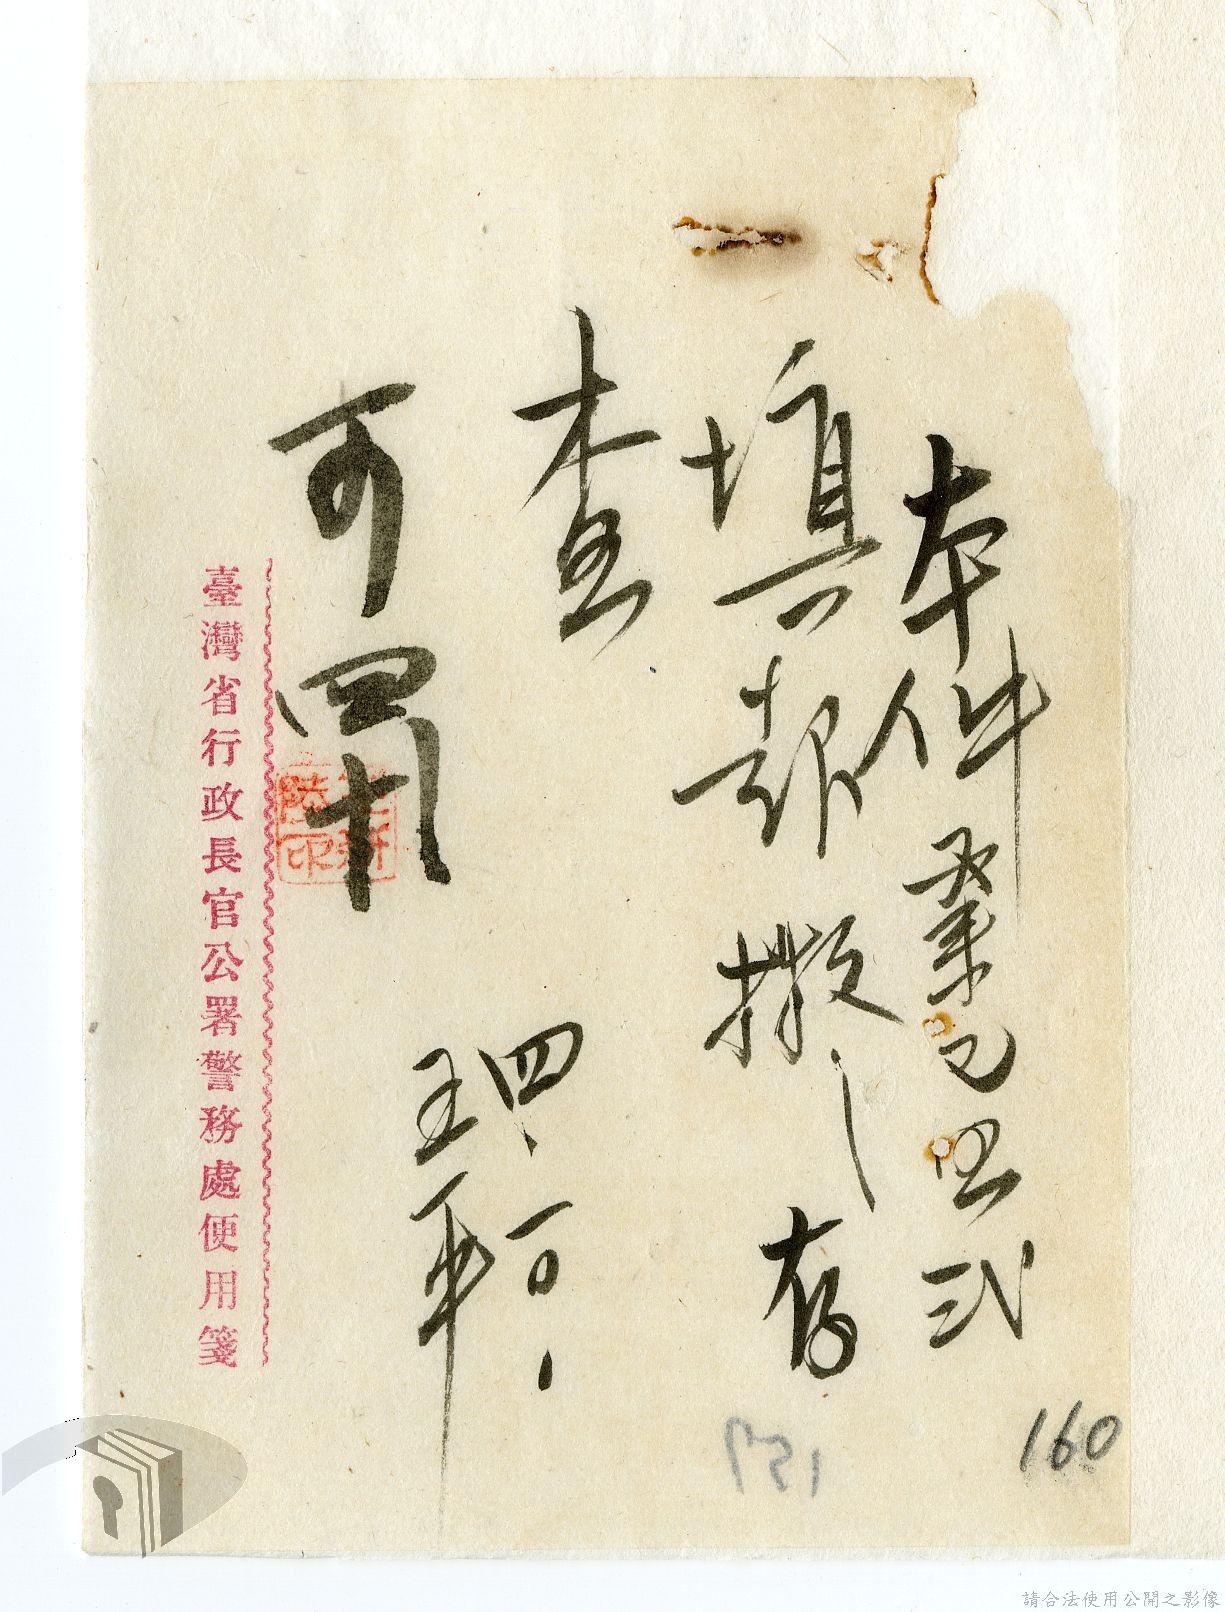 本件業已照式
填報擬存
查
王一平
可
臺灣省行政長官公署警務處便用箋
160
請合法使用公開之影像